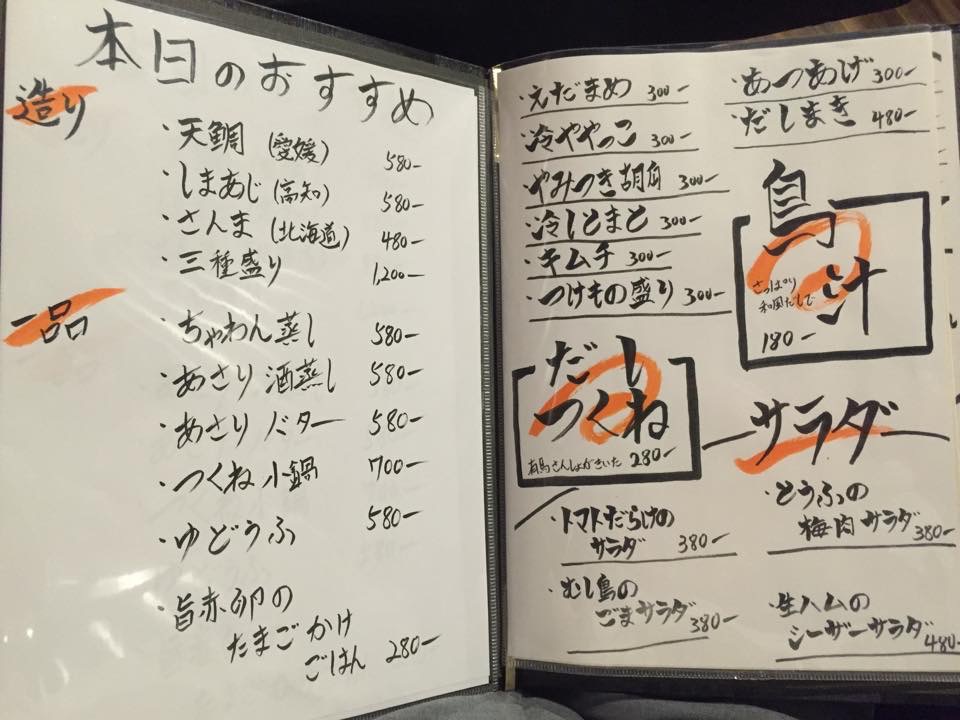 本日のおすすめ
造り
・天鯛(愛媛) 580-
・しまあじ(高知) 580-
・さんま(北海道) 480-
・三種盛り 1,200-
一品
・ちゃわん蒸し 580-
・あさり酒蒸し 580-
・あさりバター 580-
・つくね小鍋 700-
・ゆどうふ 580-
・旨赤卵の
たまごかけ
ごはん 280-
・えだまめ 300-
・冷ややっこ 300-
・やみつき胡瓜 300-
・冷しとまと 300-
・キムチ 300-
・つけもの盛り 300-
・あつあげ 300-
・だしまき 480-
鳥汁
さっぱり
和風だしで
180-
だし
つくね
有馬さんしょがきいた 280-
サラダ
・トマトだらけの
サラダ 380-
・むし鳥の
ごまサラダ 380-
・とうふの
梅肉サラダ 380-
・生ハムの
シーザーサラダ 480-